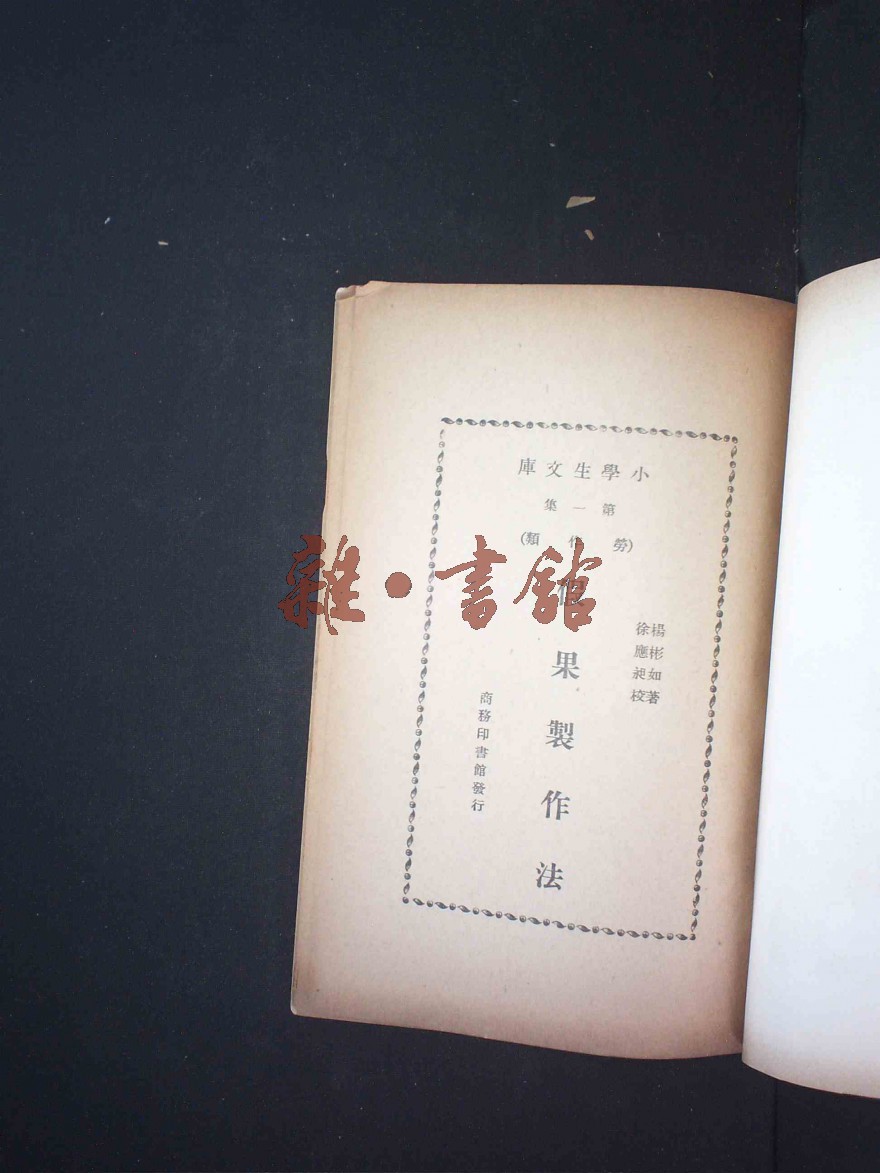 小學生文庫
第一集
(勞作類)
楊彬如著
徐應昶校
假果製作法
商務印書館發行
雜·書館